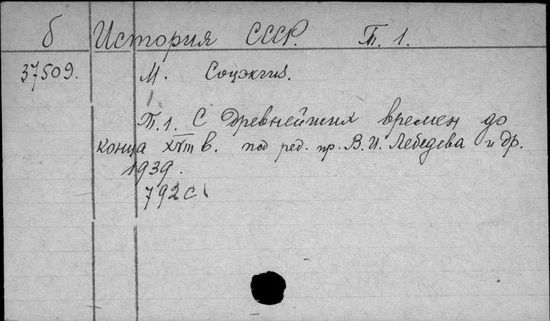 б История СССР. Т. 1.
37509. М. Соцэкгиз.
1.
Т. 1. С Древнейших времен до
конца XVIII в. под ред. пр. В. И. Лебедева и др.
1939.
792 с.